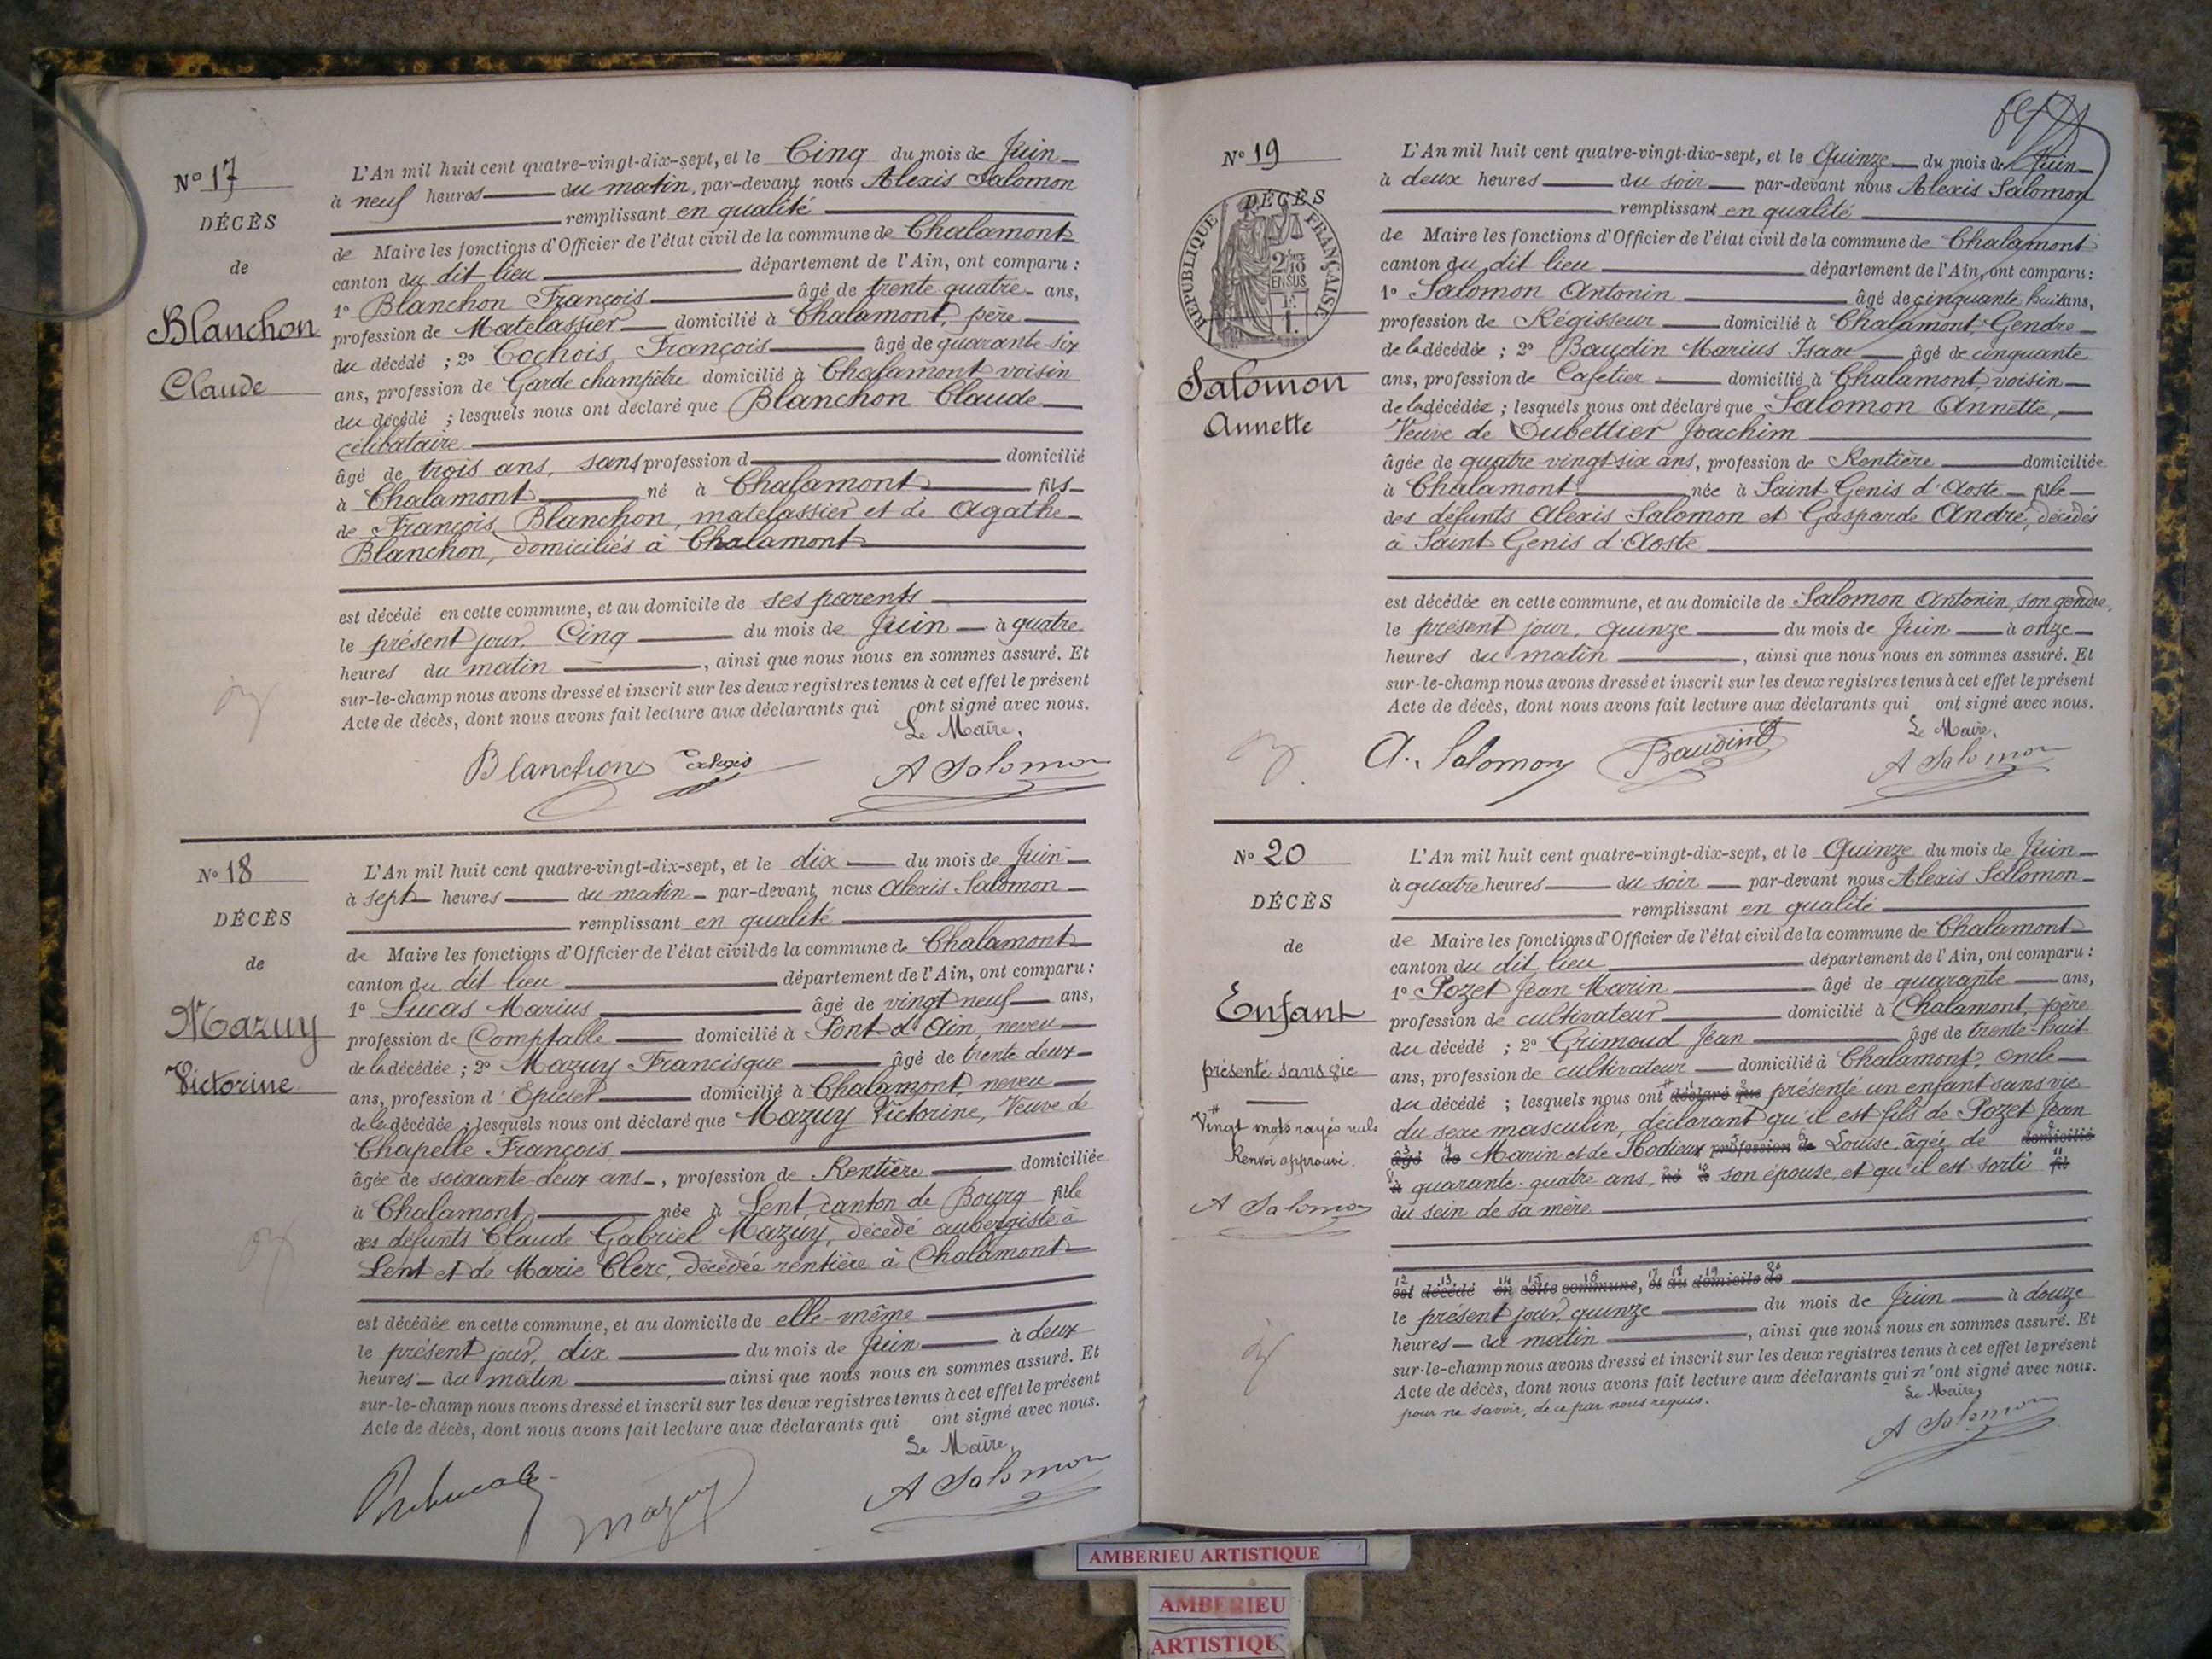 N° 17
DÉCÈS
de
Blanchon
Claude
L'An mil huit cent quatre-vingt-dix-sept, et le Cinq du mois de Juin
à neuf heures du matin, par-devant nous Alexis Salomon
remplissant en qualité
de Maire les fonctions d'Officier de l'état civil de la commune de Chalamont
canton du dit lieu département de l'Ain, ont comparu :
1° Blanchon François âgé de trente quatre ans,
profession de Matelassier domicilié à Chalamont, père
du décédé ; 2° Cochois François âgé de quarante-six
ans, profession de Garde champêtre domicilié à Chalamont voisin
du décédé ; lesquels nous ont déclaré que Blanchon Claude
célibataire
âgé de trois ans, sans profession d domicilié
à Chalamont né à Chalamont fils
de François Blanchon, matelassier et de Agathe
Blanchon, domiciliés à Chalamont
est décédé en cette commune, et au domicile de ses parents
le présent jour, Cinq du mois de Juin à quatre
heures du matin , ainsi que nous nous en sommes assuré. Et
sur-le-champ nous avons dressé et inscrit sur les deux registres tenus à cet effet le présent
Acte de décès, dont nous avons fait lecture aux déclarants qui ont signé avec nous.
Le Maire,
Blanchon Cochois A Salomon
N° 18
DÉCÈS
de
Mazuy
Victorine
L'An mil huit cent quatre-vingt-dix-sept, et le dix du mois de Juin
à sept heures du matin par-devant nous Alexis Salomon
remplissant en qualité
de Maire les fonctions d'Officier de l'état civil de la commune de Chalamont
canton du dit lieu département de l'Ain, ont comparu :
1° Lucas Marius âgé de vingt neuf ans,
profession de Comptable domicilié à Pont-d'Ain, neveu
de la décédée ; 2° Mazuy Francisque âgé de trente deux
ans, profession d'Epicier domicilié à Chalamont neveu
de la décédée ; lesquels nous ont déclaré que Mazuy Victorine, Veuve de
Chapelle François
âgée de soixante-deux ans, profession de Rentière domiciliée
à Chalamont née à Lent, canton de Bourg fille
des défunts Claude Gabriel Mazuy, décédé aubergiste à
Lent et de Marie Clerc, décédée rentière à Chalamont
est décédée en cette commune, et au domicile de elle-même
le présent jour, dix du mois de Juin à deux
heures du matin ainsi que nous nous en sommes assuré. Et
sur-le-champ nous avons dressé et inscrit sur les deux registres tenus à cet effet le présent
Acte de décès, dont nous avons fait lecture aux déclarants qui ont signé avec nous.
Le Maire,
Mazuy A Salomon
N° 19
DÉCÈS
RÉPUBLIQUE FRANÇAISE
2/10 EN SUS
Salomon
Annette
L'An mil huit cent quatre-vingt-dix-sept, et le Quinze du mois de Juin
à deux heures du soir par-devant nous Alexis Salomon
remplissant en qualité
de Maire les fonctions d'Officier de l'état civil de la commune de Chalamont
canton du dit lieu département de l'Ain, ont comparu :
1° Salomon Antonin âgé de cinquante huit ans,
profession de Régisseur domicilié à Chalamont, Gendre
de la décédée ; 2° Baudin Marius Isaac âgé de cinquante
ans, profession de Cafetier domicilié à Chalamont, voisin
de la décédée ; lesquels nous ont déclaré que Salomon Annette,
Veuve de Dubettier Joachim
âgée de quatre vingt-six ans, profession de Rentière domiciliée
à Chalamont née à Saint Genis d'Aoste fille
des défunts Alexis Salomon et Gasparde André, décédés
à Saint Genis d'Aoste
est décédée en cette commune, et au domicile de Salomon Antonin, son gendre,
le présent jour, quinze du mois de Juin à onze
heures du matin , ainsi que nous nous en sommes assuré. Et
sur-le-champ nous avons dressé et inscrit sur les deux registres tenus à cet effet le présent
Acte de décès, dont nous avons fait lecture aux déclarants qui ont signé avec nous.
Le Maire,
A. Salomon Baudin A Salomon
N° 20
DÉCÈS
de
Enfant
présenté sans vie
Vingt mots rayés nuls
Renvoi approuvé.
A Salomon
L'An mil huit cent quatre-vingt-dix-sept, et le Quinze du mois de Juin
à quatre heures du soir par-devant nous Alexis Salomon
remplissant en qualité
de Maire les fonctions d'Officier de l'état civil de la commune de Chalamont
canton du dit lieu département de l'Ain, ont comparu :
1° Pozet Jean Marin âgé de quarante ans,
profession de cultivateur domicilié à Chalamont, père
du décédé ; 2° Grimoud Jean âgé de trente-huit
ans, profession de cultivateur domicilié à Chalamont, oncle
du décédé ; lesquels nous ont déclaré que présenté un enfant sans vie
du sexe masculin, déclarant qu'il est fils de Pozet Jean
âgé de Marin et de Hodieux profession de Louise, âgée de domicilié
à quarante-quatre ans, né à son épouse, et qu'il est sorti fil
du sein de sa mère
est décédé en cette commune, et au domicile de
le présent jour, quinze du mois de Juin à douze
heures du matin , ainsi que nous nous en sommes assuré. Et
sur-le-champ nous avons dressé et inscrit sur les deux registres tenus à cet effet le présent
Acte de décès, dont nous avons fait lecture aux déclarants qui n'ont signé avec nous.
pour ne savoir, de ce par nous requis.
Le Maire,
A Salomon
AMBERIEU ARTISTIQUE
AMBERIEU
ARTISTIQU